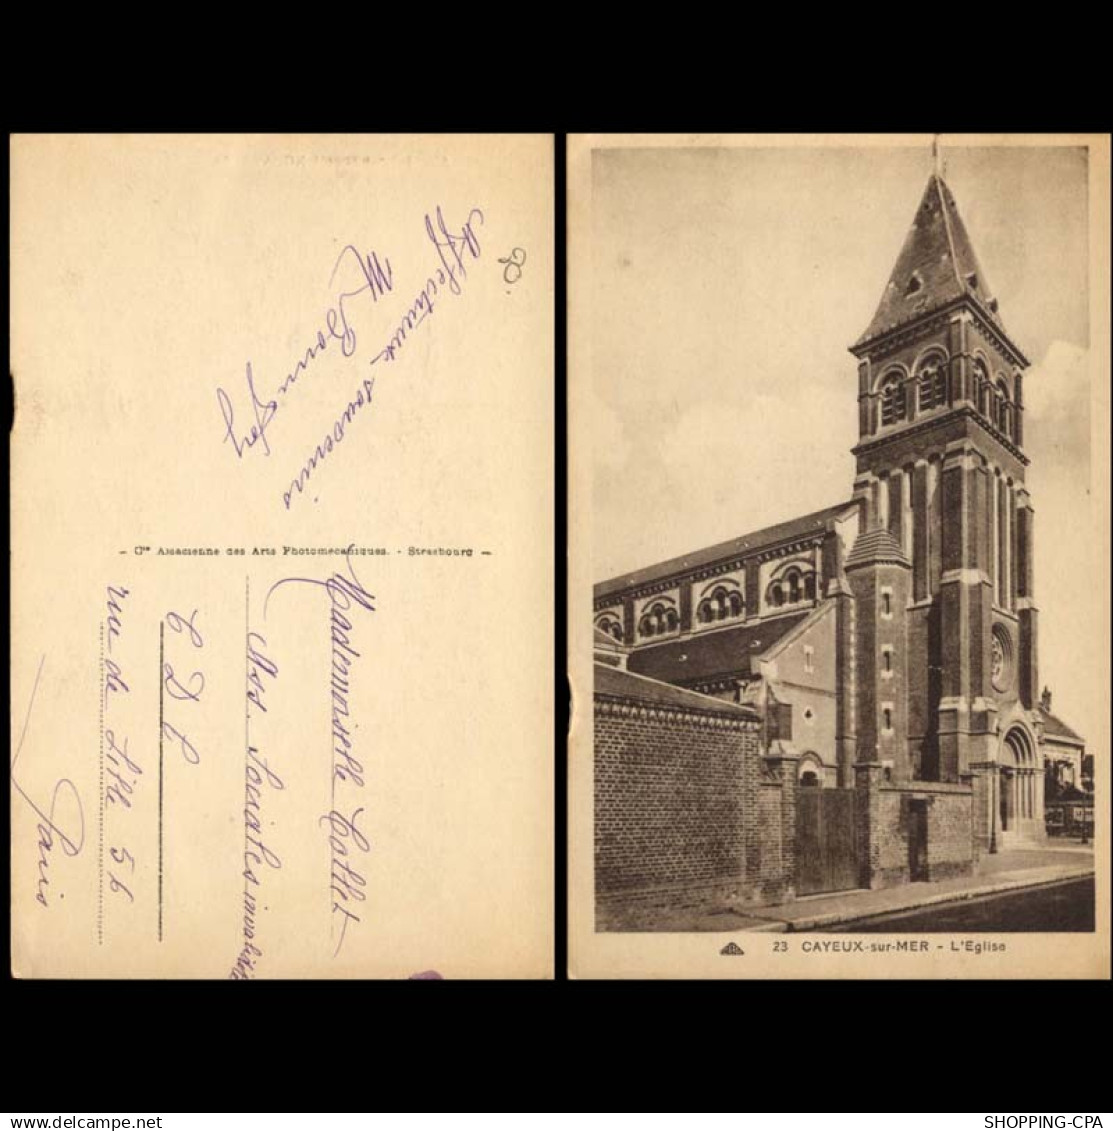 Affectueux souvenirs
M
Cie Alsacienne des Arts Photomécaniques. - Strasbourg
Mademoiselle Collet
Ass. Sociales invalidité
C D C
rue de Lille 56
Paris
23 CAYEUX-sur-MER - L'Eglise
SHOPPING-CPA